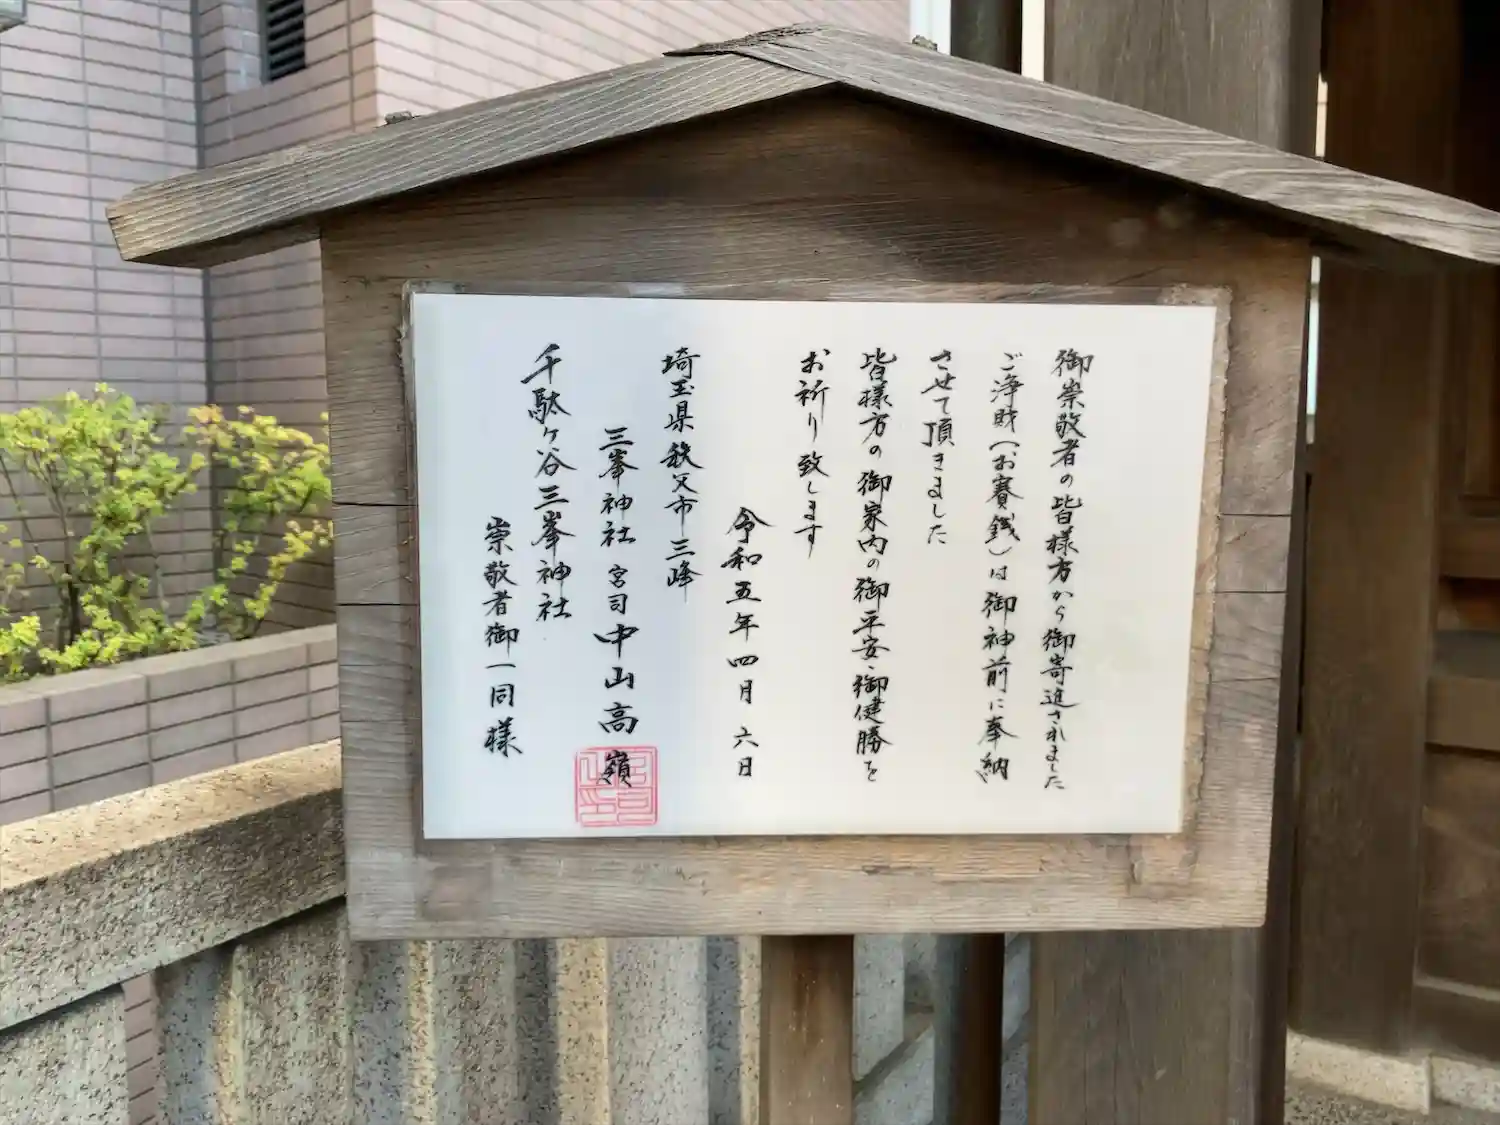 御崇敬者の皆様方から御寄進されました
ご浄財(お賽銭)は御神前に奉納
させて頂きました
皆様方の御家内の御平安・御健勝を
お祈り致します
令和五年四月六日
埼玉県秩父市三峰
三峯神社 宮司 中山高嶺
千駄ヶ谷三峯神社
崇敬者御一同様